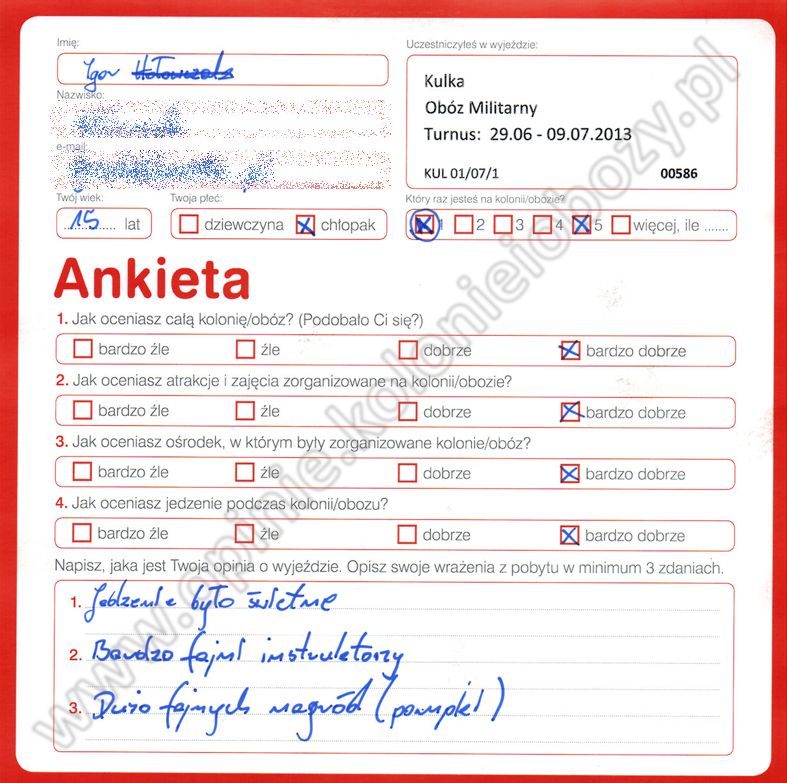 Imię:
Igor
Uczestniczyłeś w wyjeździe:
Kulka
Obóz Militarny
Turnus: 29.06 - 09.07.2013
KUL 01/07/1 00586
Nazwisko:
e-mail
Twój wiek:
15 lat
Twoja płeć:
dziewczyna chłopak
Który raz jesteś na kolonii/obozie?
1 2 3 4 5 więcej, ile .......
Ankieta
1. Jak oceniasz całą kolonię/obóz? (Podobało Ci się?)
bardzo źle źle dobrze bardzo dobrze
2. Jak oceniasz atrakcje i zajęcia zorganizowane na kolonii/obozie?
bardzo źle źle dobrze bardzo dobrze
3. Jak oceniasz ośrodek, w którym były zorganizowane kolonie/obóz?
bardzo źle źle dobrze bardzo dobrze
4. Jak oceniasz jedzenie podczas kolonii/obozu?
bardzo źle źle dobrze bardzo dobrze
Napisz, jaka jest Twoja opinia o wyjeździe. Opisz swoje wrażenia z pobytu w minimum 3 zdaniach.
1. Jedzenie było świetne
2. Bardzo fajni instruktorzy
3. Dużo fajnych nagród (pompki)
www.opinie.kolonieiobozy.pl